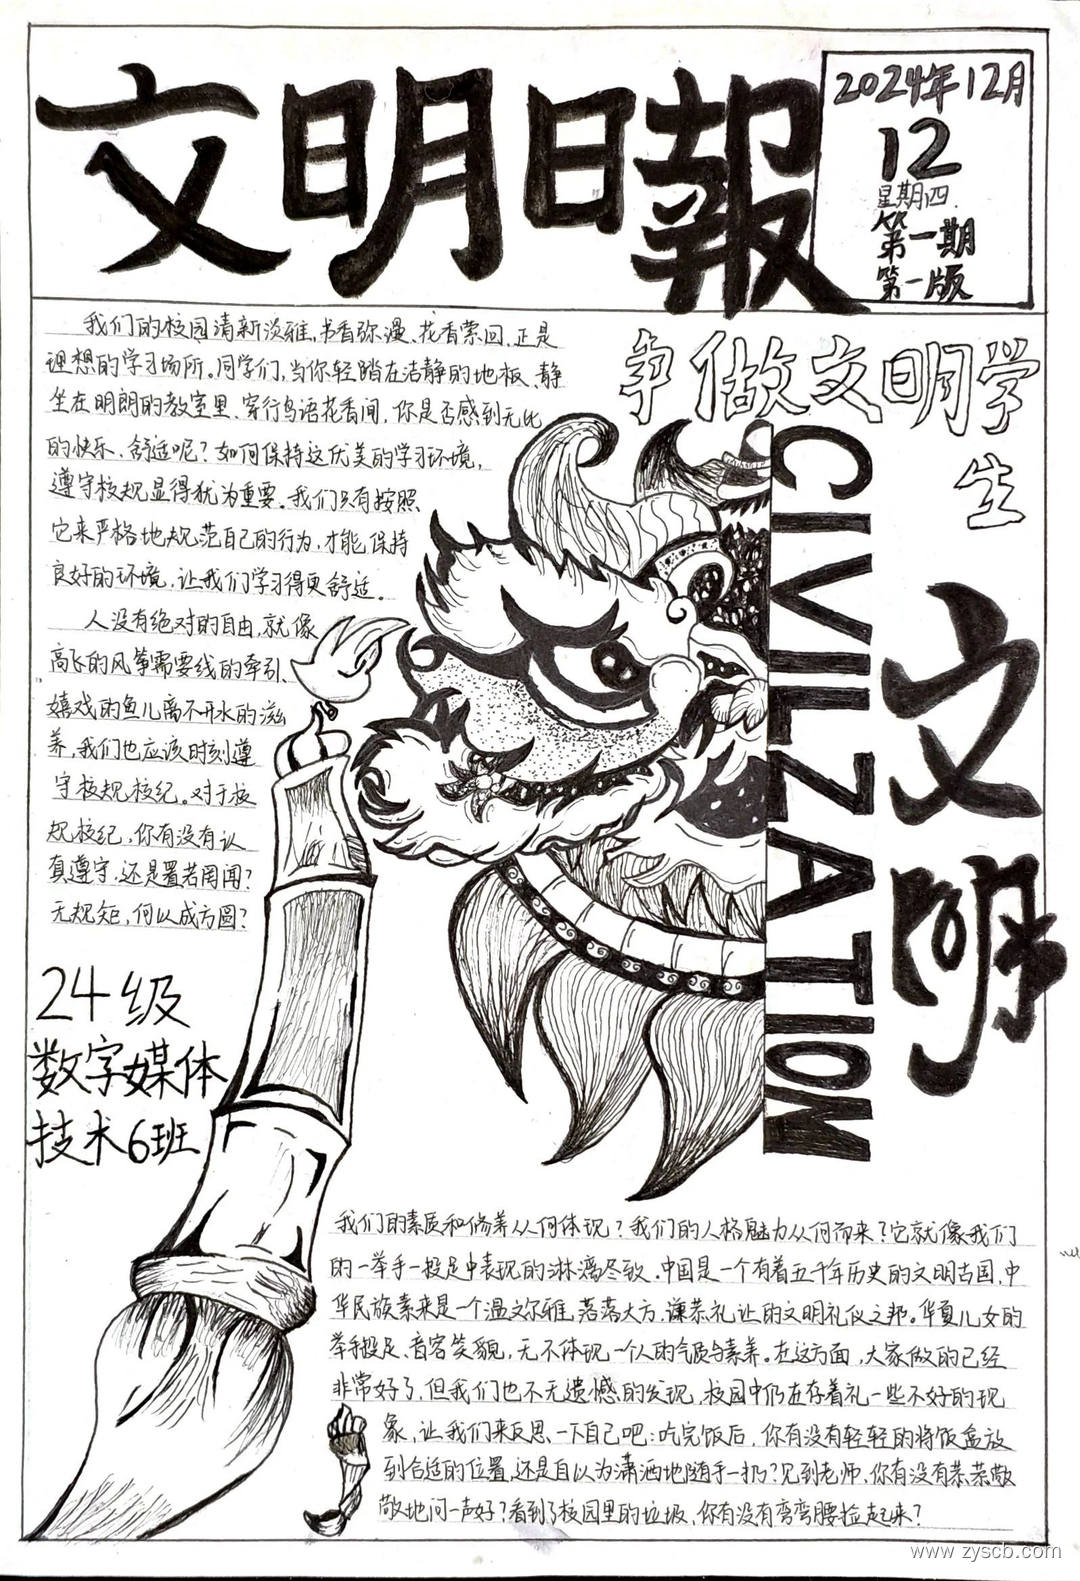 文明日報
2024年12月
12
星期四
第一期
第一版
我们的校园清新淡雅，书香弥漫、花香萦回，正是
理想的学习场所。同学们，当你轻踏在洁静的地板、静
坐在明朗的教室里、穿行鸟语花香间，你是否感到无比
的快乐、舒适呢？如何保持这优美的学习环境，
遵守校规显得犹为重要。我们只有按照
它来严格地规范自己的行为，才能保持
良好的环境，让我们学习得更舒适。
人没有绝对的自由，就像
高飞的风筝需要线的牵引、
嬉戏的鱼儿离不开水的滋
养，我们也应该时刻遵
守校规校纪。对于校
规校纪，你有没有认
真遵守，还是置若罔闻？
无规矩，何以成方圆？
争做文明学
生
CIVILZATION
文明
24级
数字媒体
技术6班
我们的素质和修养从何体现？我们的人格魅力从何而来？它就像我们
的一举手一投足中表现的淋漓尽致，中国是一个有着五千年历史的文明古国，中
华民族素来是一个温文尔雅，落落大方，谦恭礼让的文明礼仪之邦。华夏儿女的
举手投足、音容笑貌，无不体现一个人的气质与素养。在这方面，大家做的已经
非常好了，但我们也不无遗憾的发现，校园中仍在存着礼一些不好的现
象，让我们来反思一下自己吧：吃完饭后，你有没有轻轻的将饭盒放
到合适的位置，还是自以为潇洒地随手一扔？见到老师，你有没有恭恭敬
敬地问一声好？看到了校园里的垃圾，你有没有弯弯腰捡起来？
www.zyscb.com